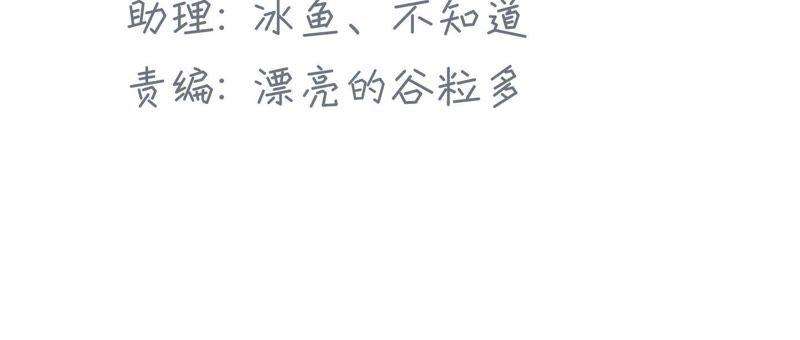 助理: 冰鱼、不知道
责编: 漂亮的谷粒多